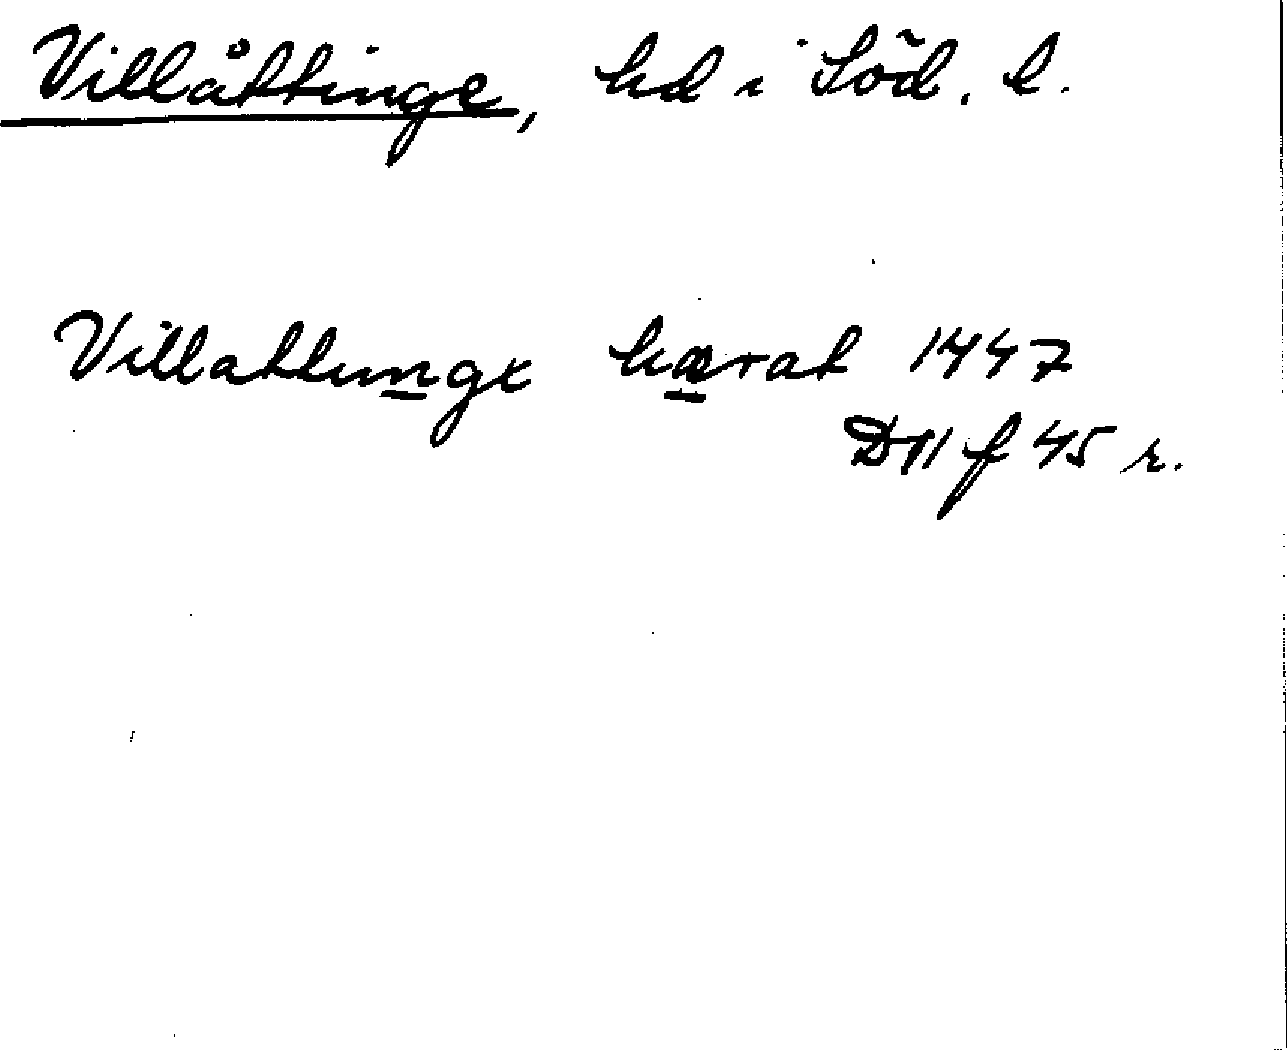 Villåttinge, hd i Söd. l.
Villattunge hærat 1447
D 11 f 45 r.